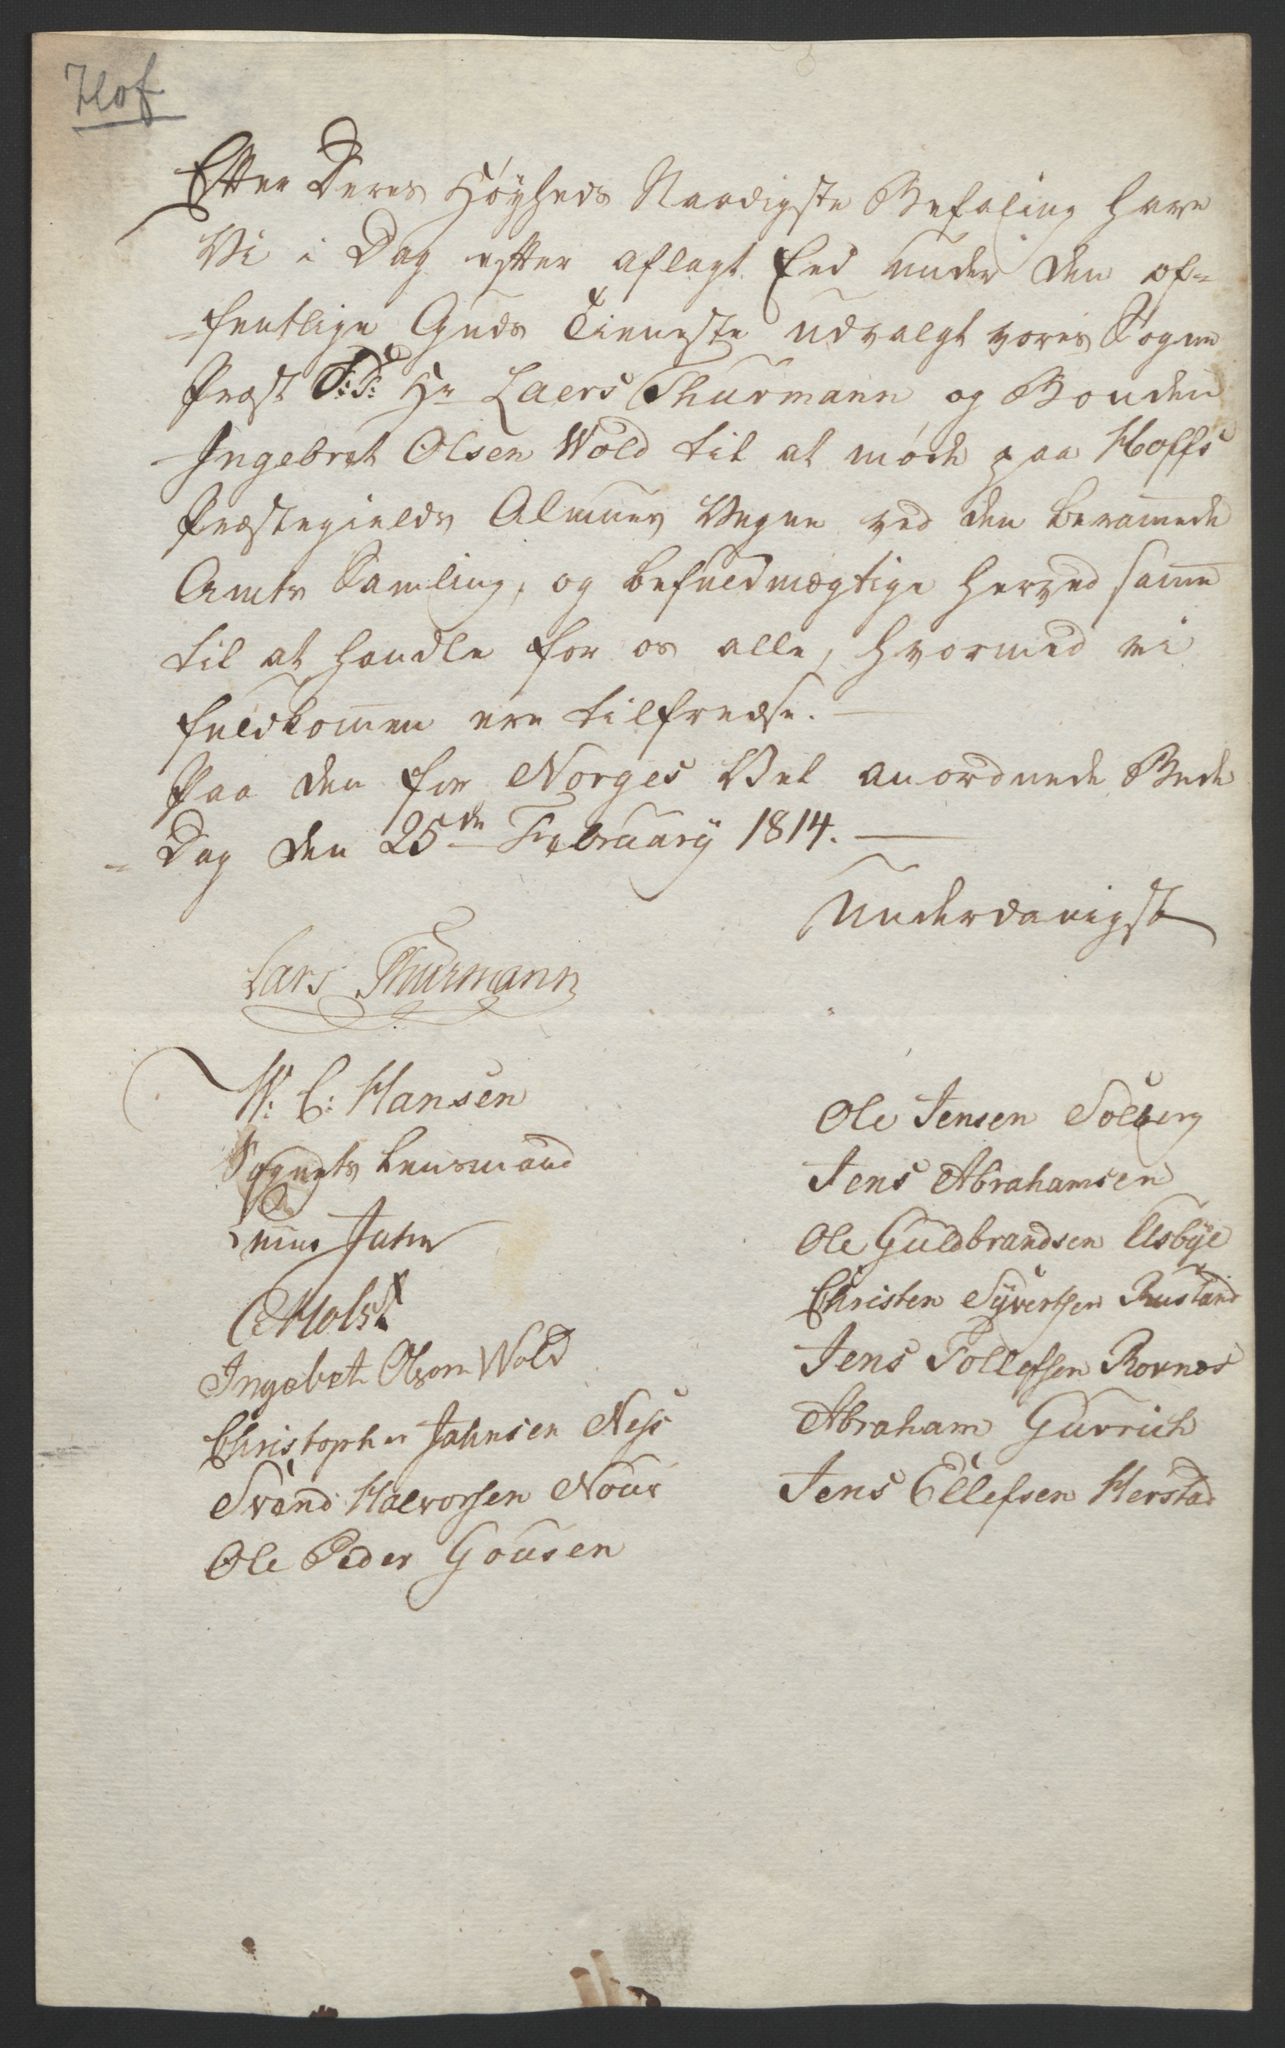 Hof
Efter Deres Høyheds Naadigste Befaling have
Vi i Dag efter aflagt Eed under den of-
fentlige Guds Tieneste udvalgt vores Sogne
Præst S: T: Hr Laers Thurmann og Bonden
Ingebret Olsen Wold til at møde paa Hoffs
Præstegields Almues Vegne ved den beramede
Amts Samling, og befuldmægtige herved same
til at handle for os alle, hvormed vi
fuldkomen ere tilfredse.
Paa den for Norges Vel anordnede Bede
Dag den 25de February 1814.
Underdanigst
Lars Thurmann
W: C: Hansen
Sognets Lensmand
Jahn
C Holst
Ingebet Olsen Wold
Christopher Jahnsen Ness
Svend Halvorsen Nour
Ole Peder Gousen
Ole Jensen Solberg
Jens Abrahamsen
Ole Guldbrandsen Elsbye
Christen Syvertsen Rustand
Jens Tollefsen Rovnes
Abraham Gurrich
Jens Ellefsen Herstad